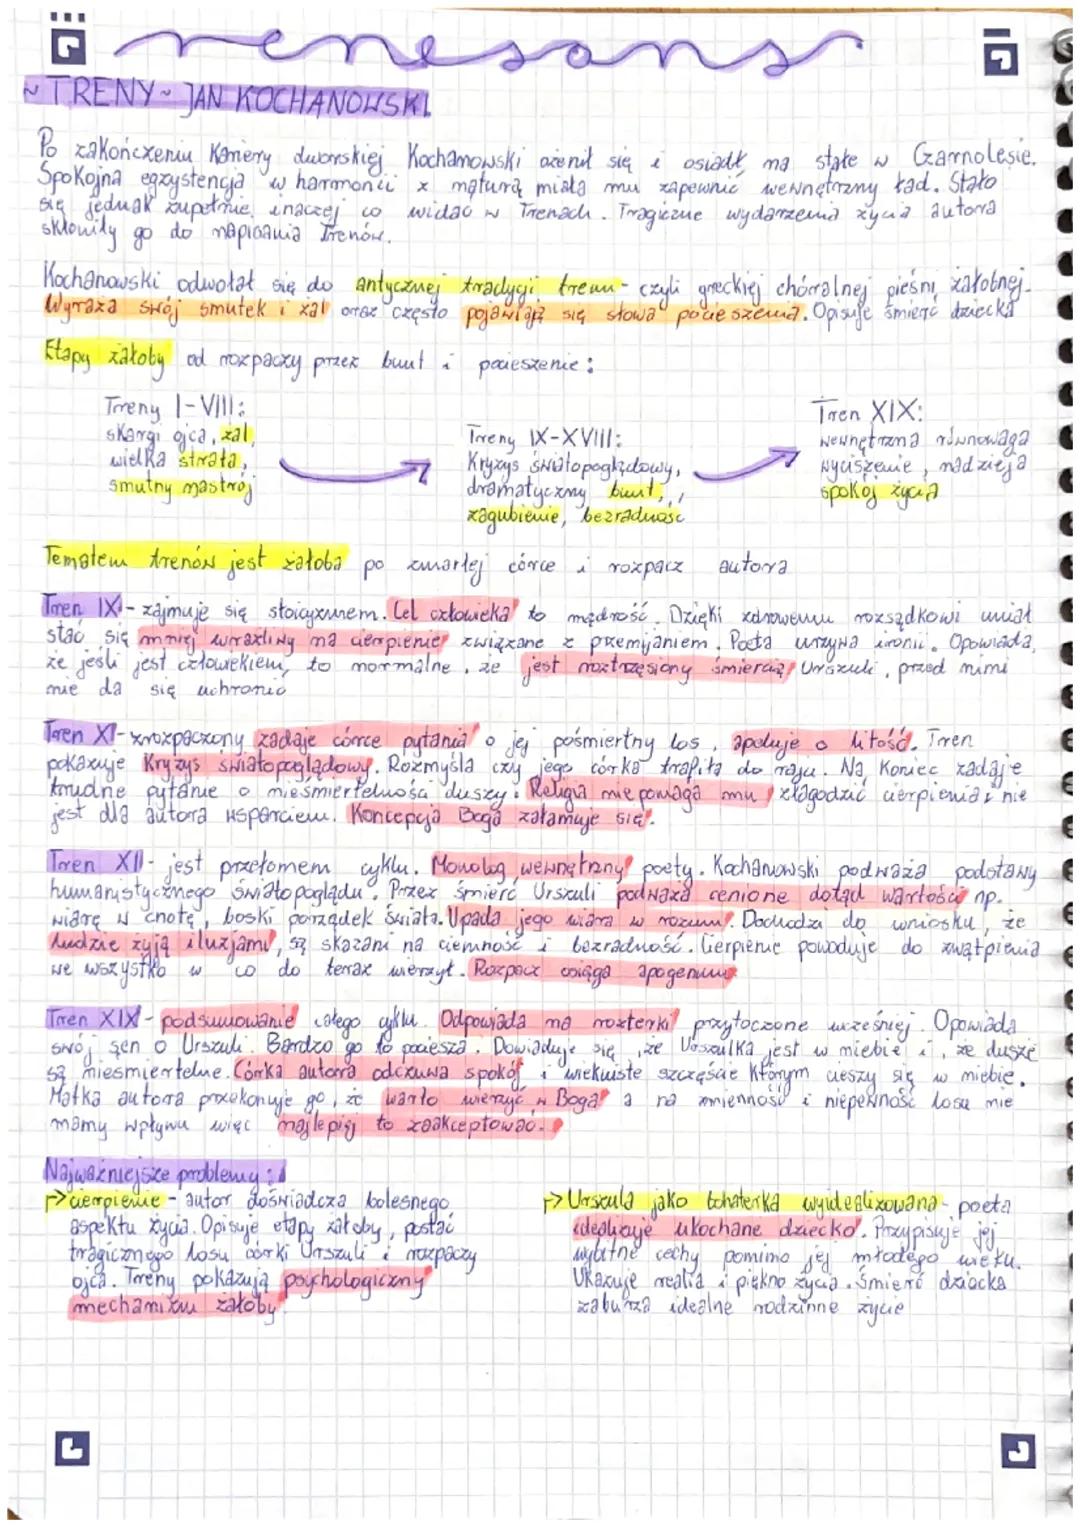 renesans
~ TRENY ~ JAN KOCHANOWSKI
Po zakończeniu kariery dworskiej Kochanowski ożenił się i osiadł na stałe w Czarnolesie.
Spokojna egzystencja w harmonii z naturą miała mu zapewnić wewnętrzny ład. Stało
się jednak zupełnie inaczej co widać w Trenach. Tragiczne wydarzenia życia autora
skłoniły go do napisania Trenów.
Kochanowski odwołał się do antycznej tradycji trenu - czyli greckiej chóralnej pieśni żałobnej.
Wyraża swój smutek i żal oraz często pojawiają się słowa pocieszenia. Opisuje śmierć dziecka
Etapy żałoby od rozpaczy przez bunt i pocieszenie:
Treny I-VIII:
skargi ojca, żal,
wielka strata,
smutny nastrój
Treny IX-XVIII:
Kryzys światopoglądowy,
dramatyczny bunt,
zagubienie, bezradność
Tren XIX:
wewnętrzna równowaga
wyciszenie, nadzieja
spokój życia
Tematem trenów jest żałoba po zmarłej córce i rozpacz autora
Tren IX - zajmuje się stoicyzmem. Cel człowieka to mądrość. Dzięki zdrowemu rozsądkowi miał
stać się mniej wrażliwy na cierpienie związane z przemijaniem. Poeta używa ironii. Opowiada,
że jeśli jest człowiekiem, to normalne, że jest roztrzęsiony śmiercią Urszuli, przed nimi
nie da się uchronić
Tren X - zrozpaczony zadaje córce pytania o jej pośmiertny los, apeluje o litość. Tren
pokazuje Kryzys światopoglądowy. Rozmyśla czy jego córka trafiła do raju. Na koniec zadaje
trudne pytanie o nieśmiertelności duszy. Religia nie pomaga mu złagodzić cierpienia i nie
jest dla autora wsparciem. Koncepcja Boga załamuje się.
Tren XI - jest przełomem cyklu. Monolog wewnętrzny poety. Kochanowski podważa podstawy
humanistycznego światopoglądu. Przez śmierć Urszuli podważa cenione dotąd wartości np.
wiarę w cnotę, boski porządek świata. Upada jego wiara w rozum. Dochodzi do wniosku, że
ludzie żyją iluzjami, są skazani na ciemność i bezradność. Cierpienie powoduje do zwątpienia
we wszystko w co do teraz wierzył. Rozpacz osiąga apogeum
Tren XIX - podsumowanie całego cyklu. Odpowiada na rozterki przytoczone wcześniej. Opowiada
swój sen o Urszuli. Bardzo go to pociesza. Dowiaduje się, że Urszulka jest w niebie i, że dusze
są nieśmiertelne. Córka autora odczuwa spokój i wiekuiste szczęście którym cieszy się w niebie.
Matka autora przekonuje go, że warto wierzyć w Boga a na zmienność i niepewność losu nie
mamy wpływu więc najlepiej to zaakceptować.
Najważniejsze problemy:
→ cierpienie - autor doświadcza bolesnego
aspektu życia. Opisuje etapy żałoby, postać
tragicznego losu córki Urszuli i rozpaczy
ojca. Treny pokazują psychologiczny
mechanizm żałoby
→ Urszula jako bohaterka wyidealizowana - poeta
idealizuje ukochane dziecko. Przypisuje jej
wybitne cechy pomimo jej młodego wieku.
Ukazuje realia i piękno życia. Śmierć dziecka
zaburza idealne rodzinne życie